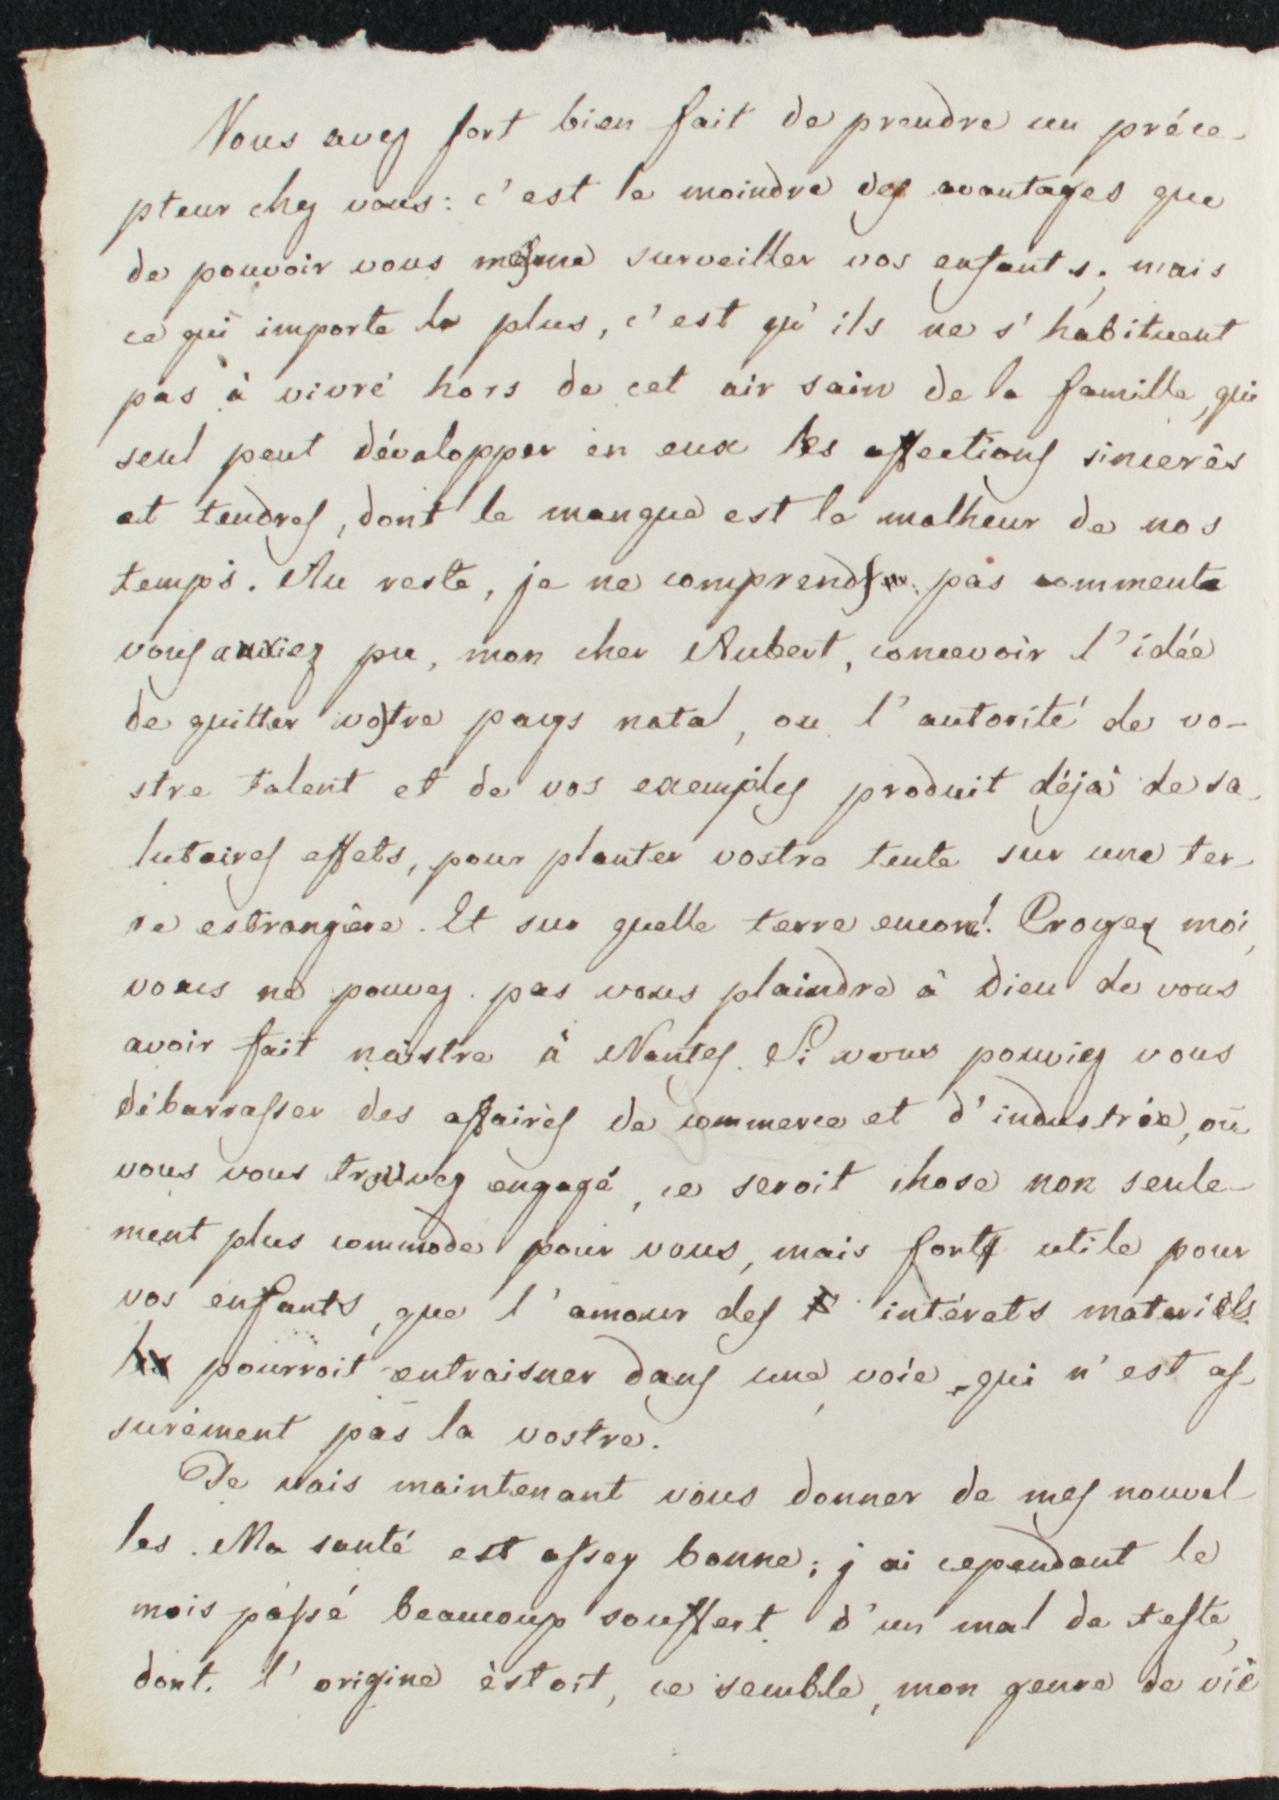 Vous avez fort bien fait de prendre un préce-
pteur chez vous: c'est le moindre des avantages que
de pouvoir vous mesme surveiller vos enfants; mais
ce qui importe le plus, c'est qu'ils ne s'habituent
pas à vivré hors de cet air sain de la famille, qui
seul peut développer en eux les affections sincerès
et tendres, dont le manque est le malheur de nos
temps. Au reste, je ne comprends pas comment
vous auriez pu, mon cher Aubert, concevoir l'idée
de quitter vostre pays natal, ou l'autorité de vo-
stre talent et de vos exemples produit déjà de sa-
lutaires effets, pour planter vostre tente sur une ter-
re estrangère. Et sur quelle terre encore! Croyez moi,
vous ne pouvez pas vous plaindre à Dieu de vous
avoir fait naistre à Nantes. Si vous pouviez vous
débarrasser des affairès de commerce et d'industrie, où
vous vous trouvez engagé, ce seroit chose non seule-
ment plus commode pour vous, mais fort utile pour
vos enfants, que l'amour des intérets materiels
pourroit entraisner dans une voie, qui n'est as-
surément pas la vostre.
Je vais maintenant vous donner de mes nouvel-
les. Ma santé est assez bonne; j'ai cependant le
mois passé beaucoup souffert d'un mal de teste,
dont l'origine èstoit, ce semble, mon genre de vie